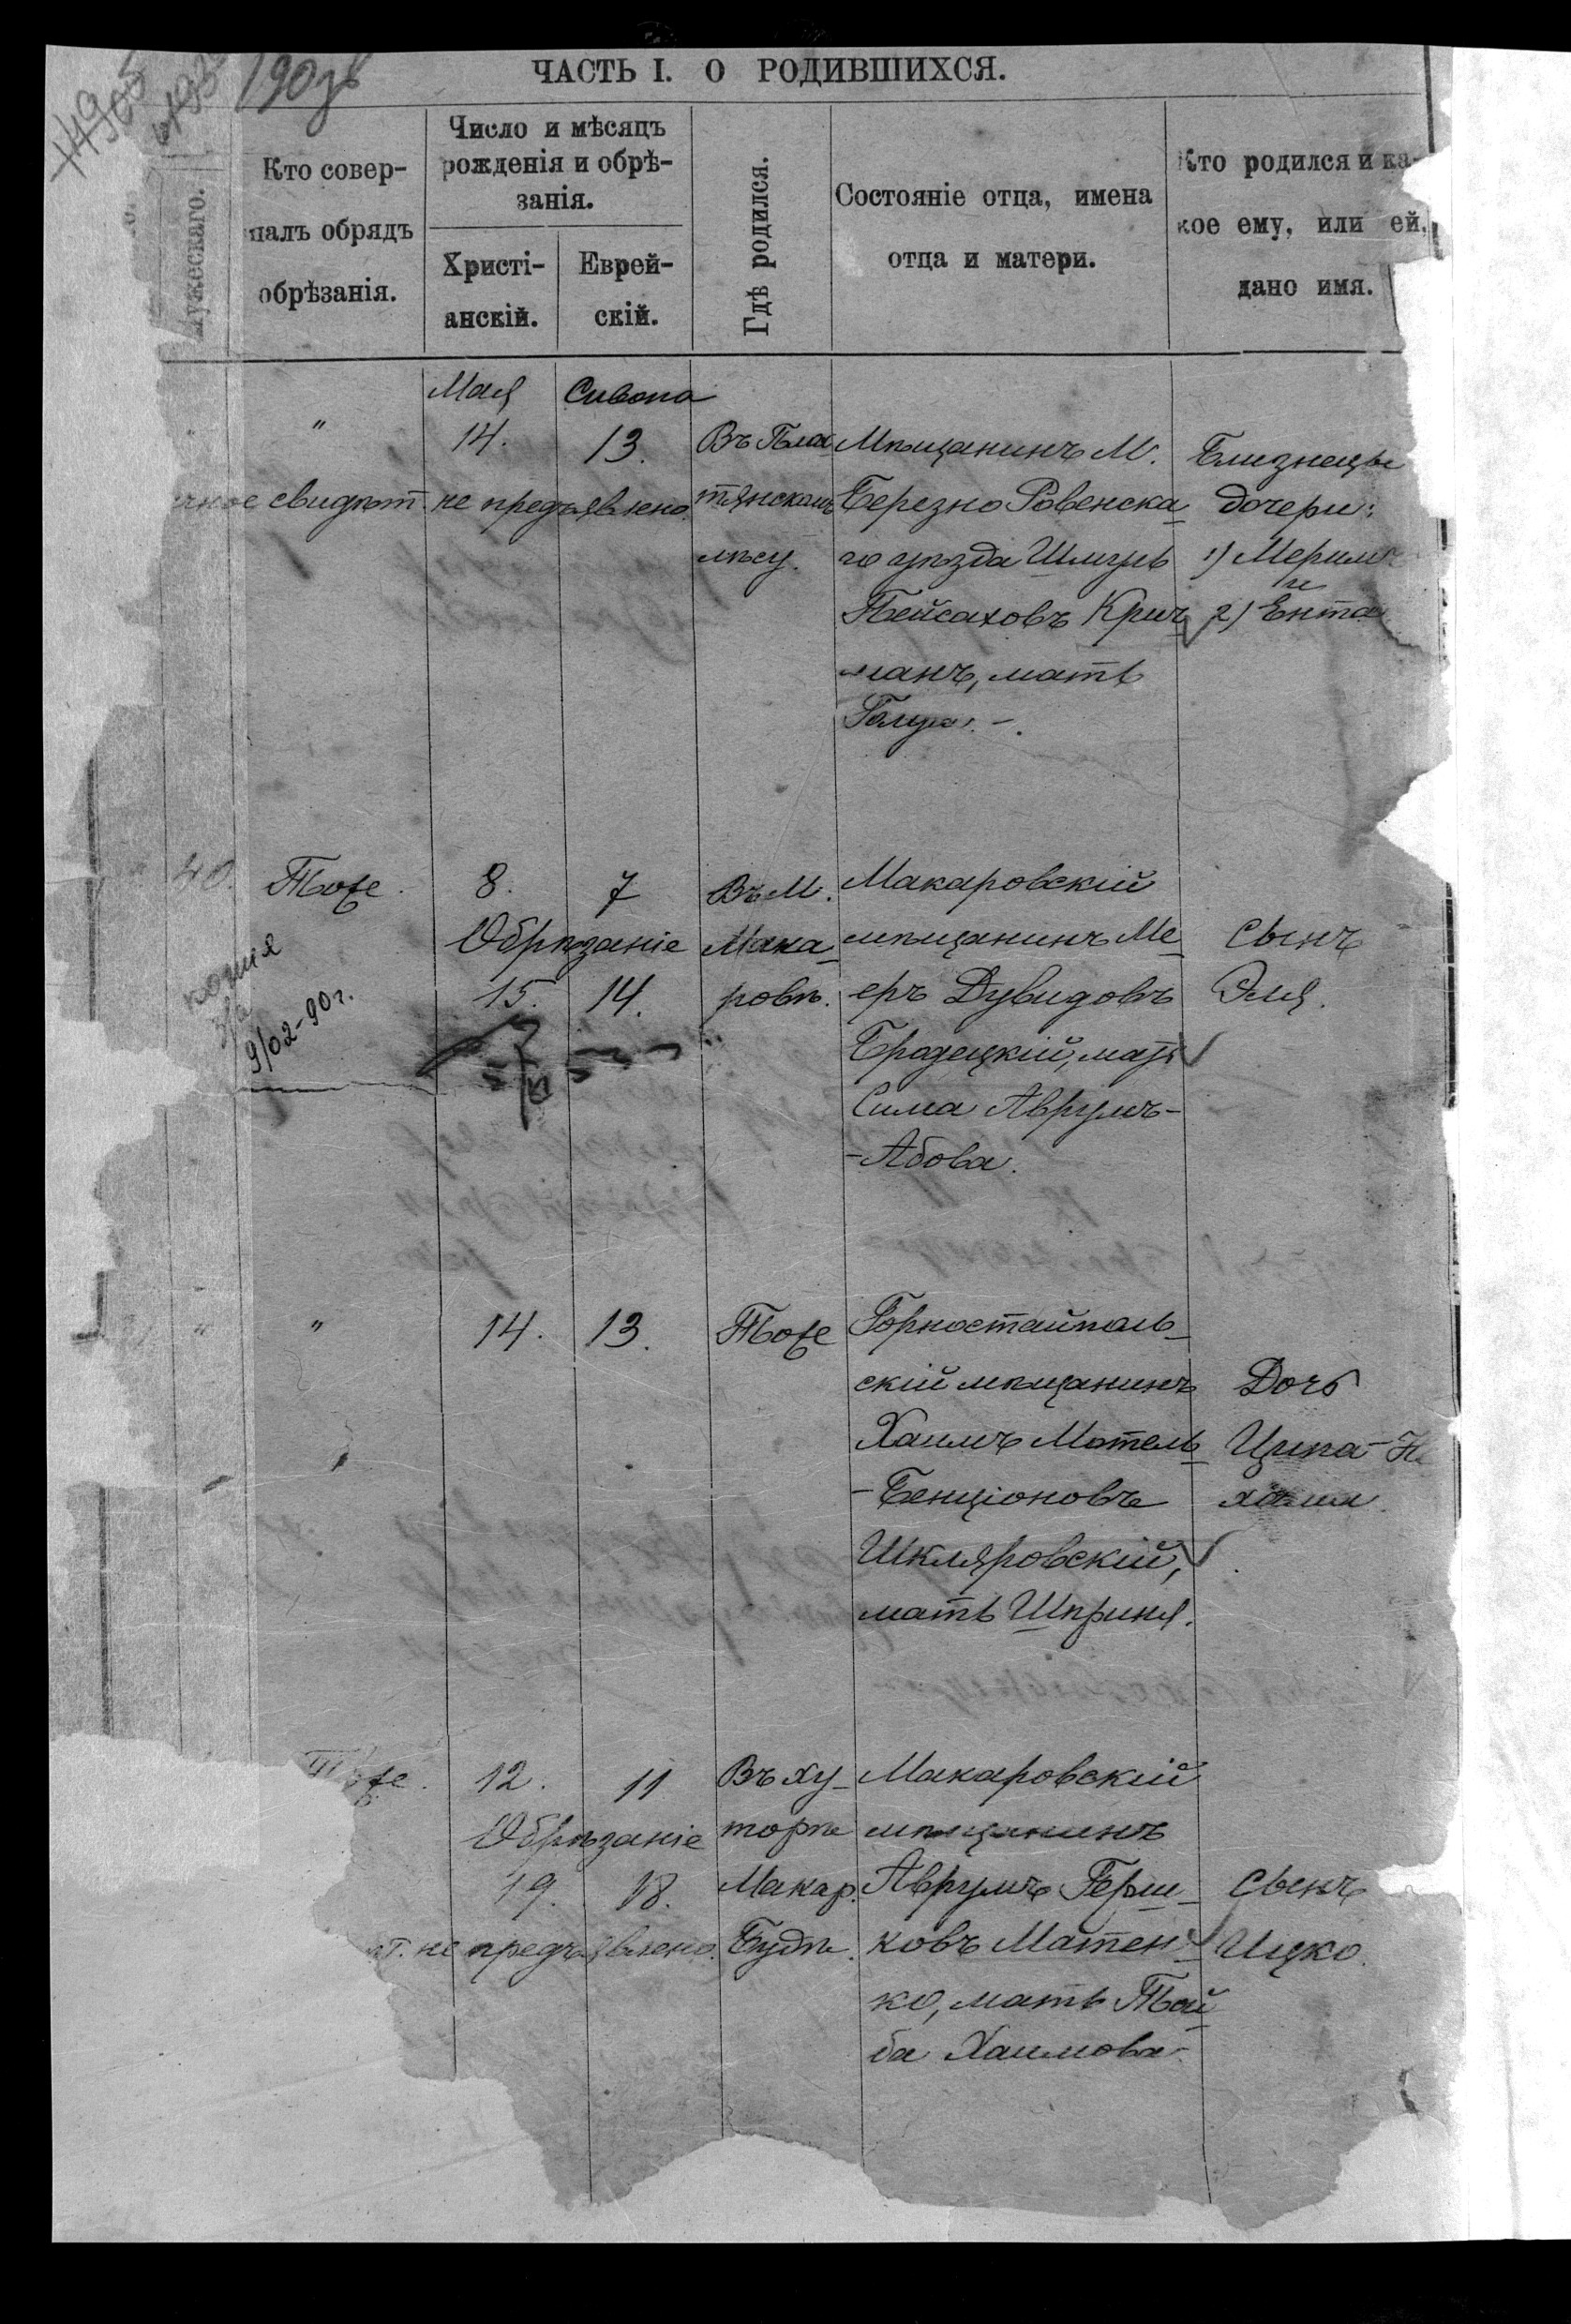 190
ЧАСТЬ I. О РОДИВШИХСЯ.
Мужескаго.
Кто совер-
шалъ обрядъ
обрѣзанія.
Число и мѣсяцъ
рожденія и обрѣ-
занія.
Христі-
анскій.
Еврей-
скій.
Гдѣ родился.
Состояніе отца, имена
отца и матери.
Кто родился и ка-
кое ему, или ей,
дано имя.
"
Мая
14.
Сивона
13.
свидѣт. не предъявлено.
Въ Пла
тянскомъ
лѣсу.
Мѣщанинъ М.
Березно Ровенска
го уѣзда Шмуль
Пейсаховъ Крич
манъ, мать
Близнецы
дочери:
1) Мерим
и
2) Ента
40.
Тоже.
8.
7
Обрѣзаніе
15.
14.
Въ М.
Мака
ровѣ.
Макаровскій
мѣщанинъ Ме
еръ Дувидовъ
Бродецкій, мать
Сима Аврумъ-
-Абова.
Сынъ
Эля.
копия
9/02-90г.
"
"
14.
13.
Тоже
Горностайполь
скій мѣщанинъ
Хаимъ Мотель
-Бенціоновъ
Шкляровскій,
мать Шприня.
Дочь
Ципа-Н
хама
Тоже.
12.
11
Обрѣзаніе
19.
18.
т. не предъявлено.
Въ ху-
торѣ
Макар.
Будѣ.
Макаровскій
мѣщанинъ
Аврумъ Герш
ковъ Матен
ко, мать Той
ба Хаимова.
Сынъ
Ицко.